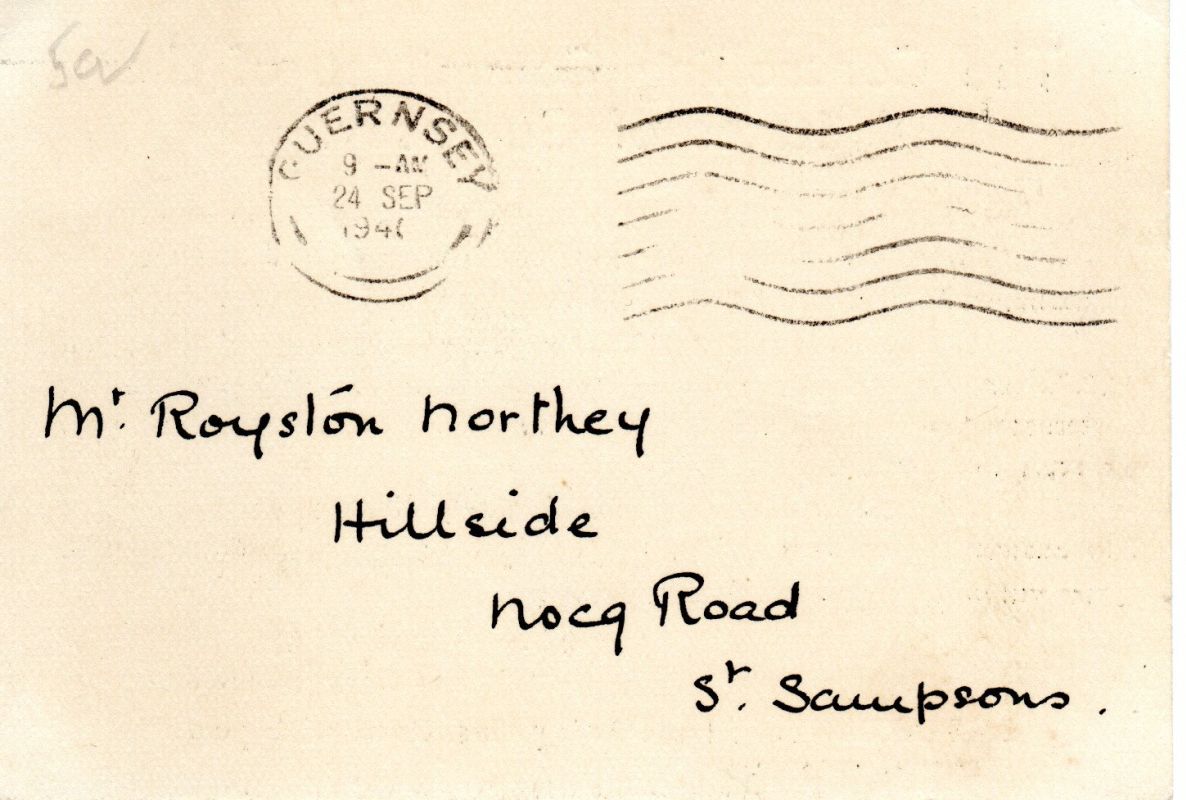 GUERNSEY
9 - AM
24 SEP
Mr. Royston Northey
Hillside
Nocq Road
St. Sampsons.